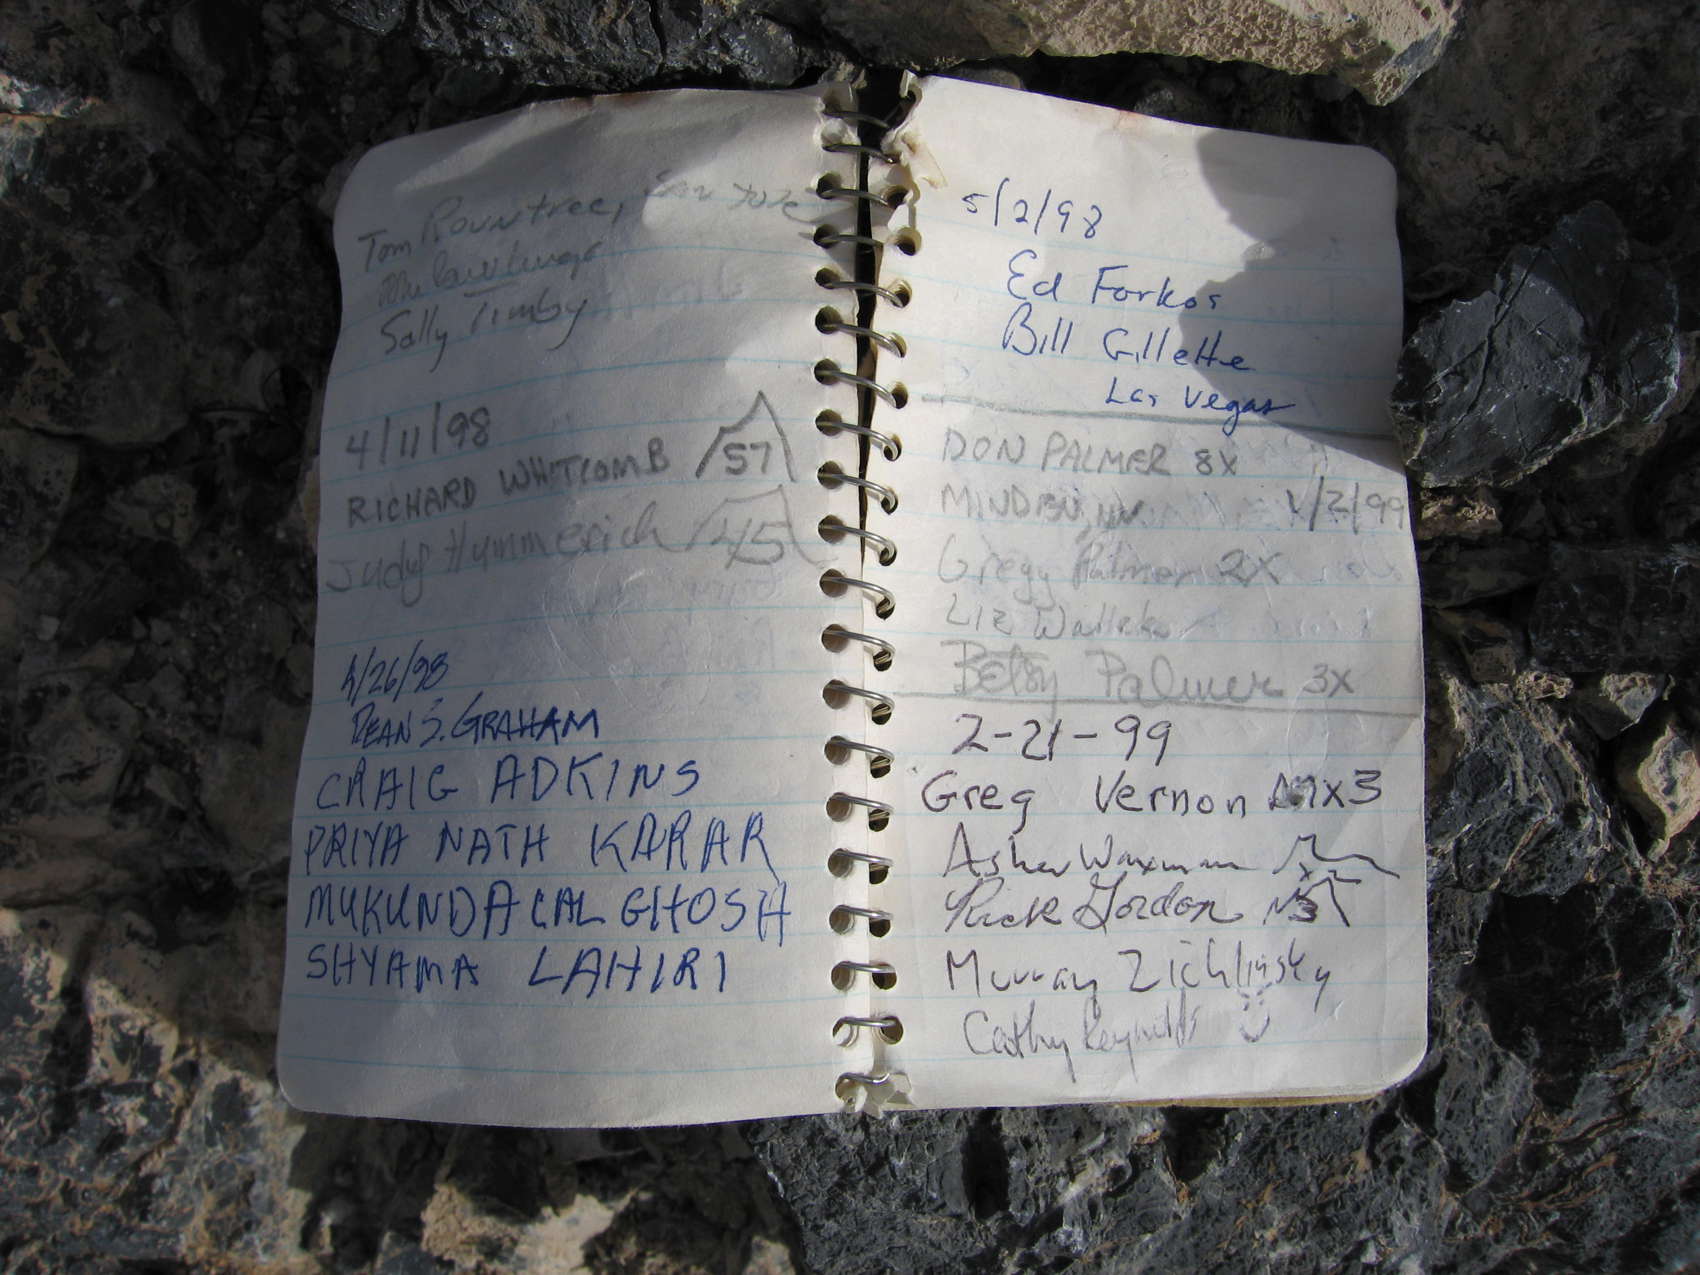 Tom Rountree, San Jose
Sally Timby
4/11/98
RICHARD WHITCOMB 57
Judy Hummerich 45
4/26/98
DEAN S. GRAHAM
CRAIG ADKINS
PRIYA NATH KARAR
MUKUNDA LAL GHOSH
SHYAMA LAHIRI
5/2/98
Ed Forkos
Bill Gillette
Las Vegas
DON PALMER 8X
MINDEN, NV. 1/2/99
Gregg Palmer 2X
Liz
Betsy Palmer 3X
2-21-99
Greg Vernon X3
Asher Waxman
Rick Gordon
Murray Zichlinsky
Cathy Reynolds